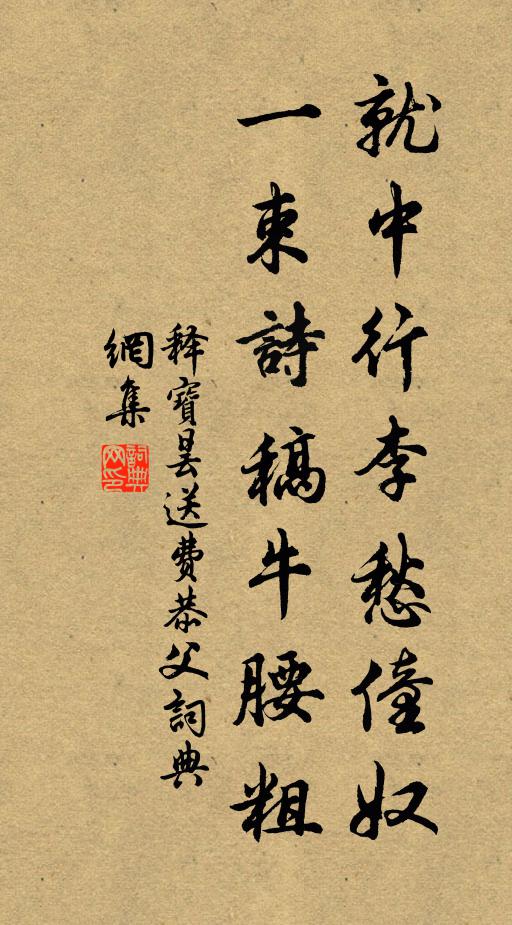 就中行李愁僮奴
一束詩稿牛腰粗
释寶曇送費恭父詞典
網集
詞典網印